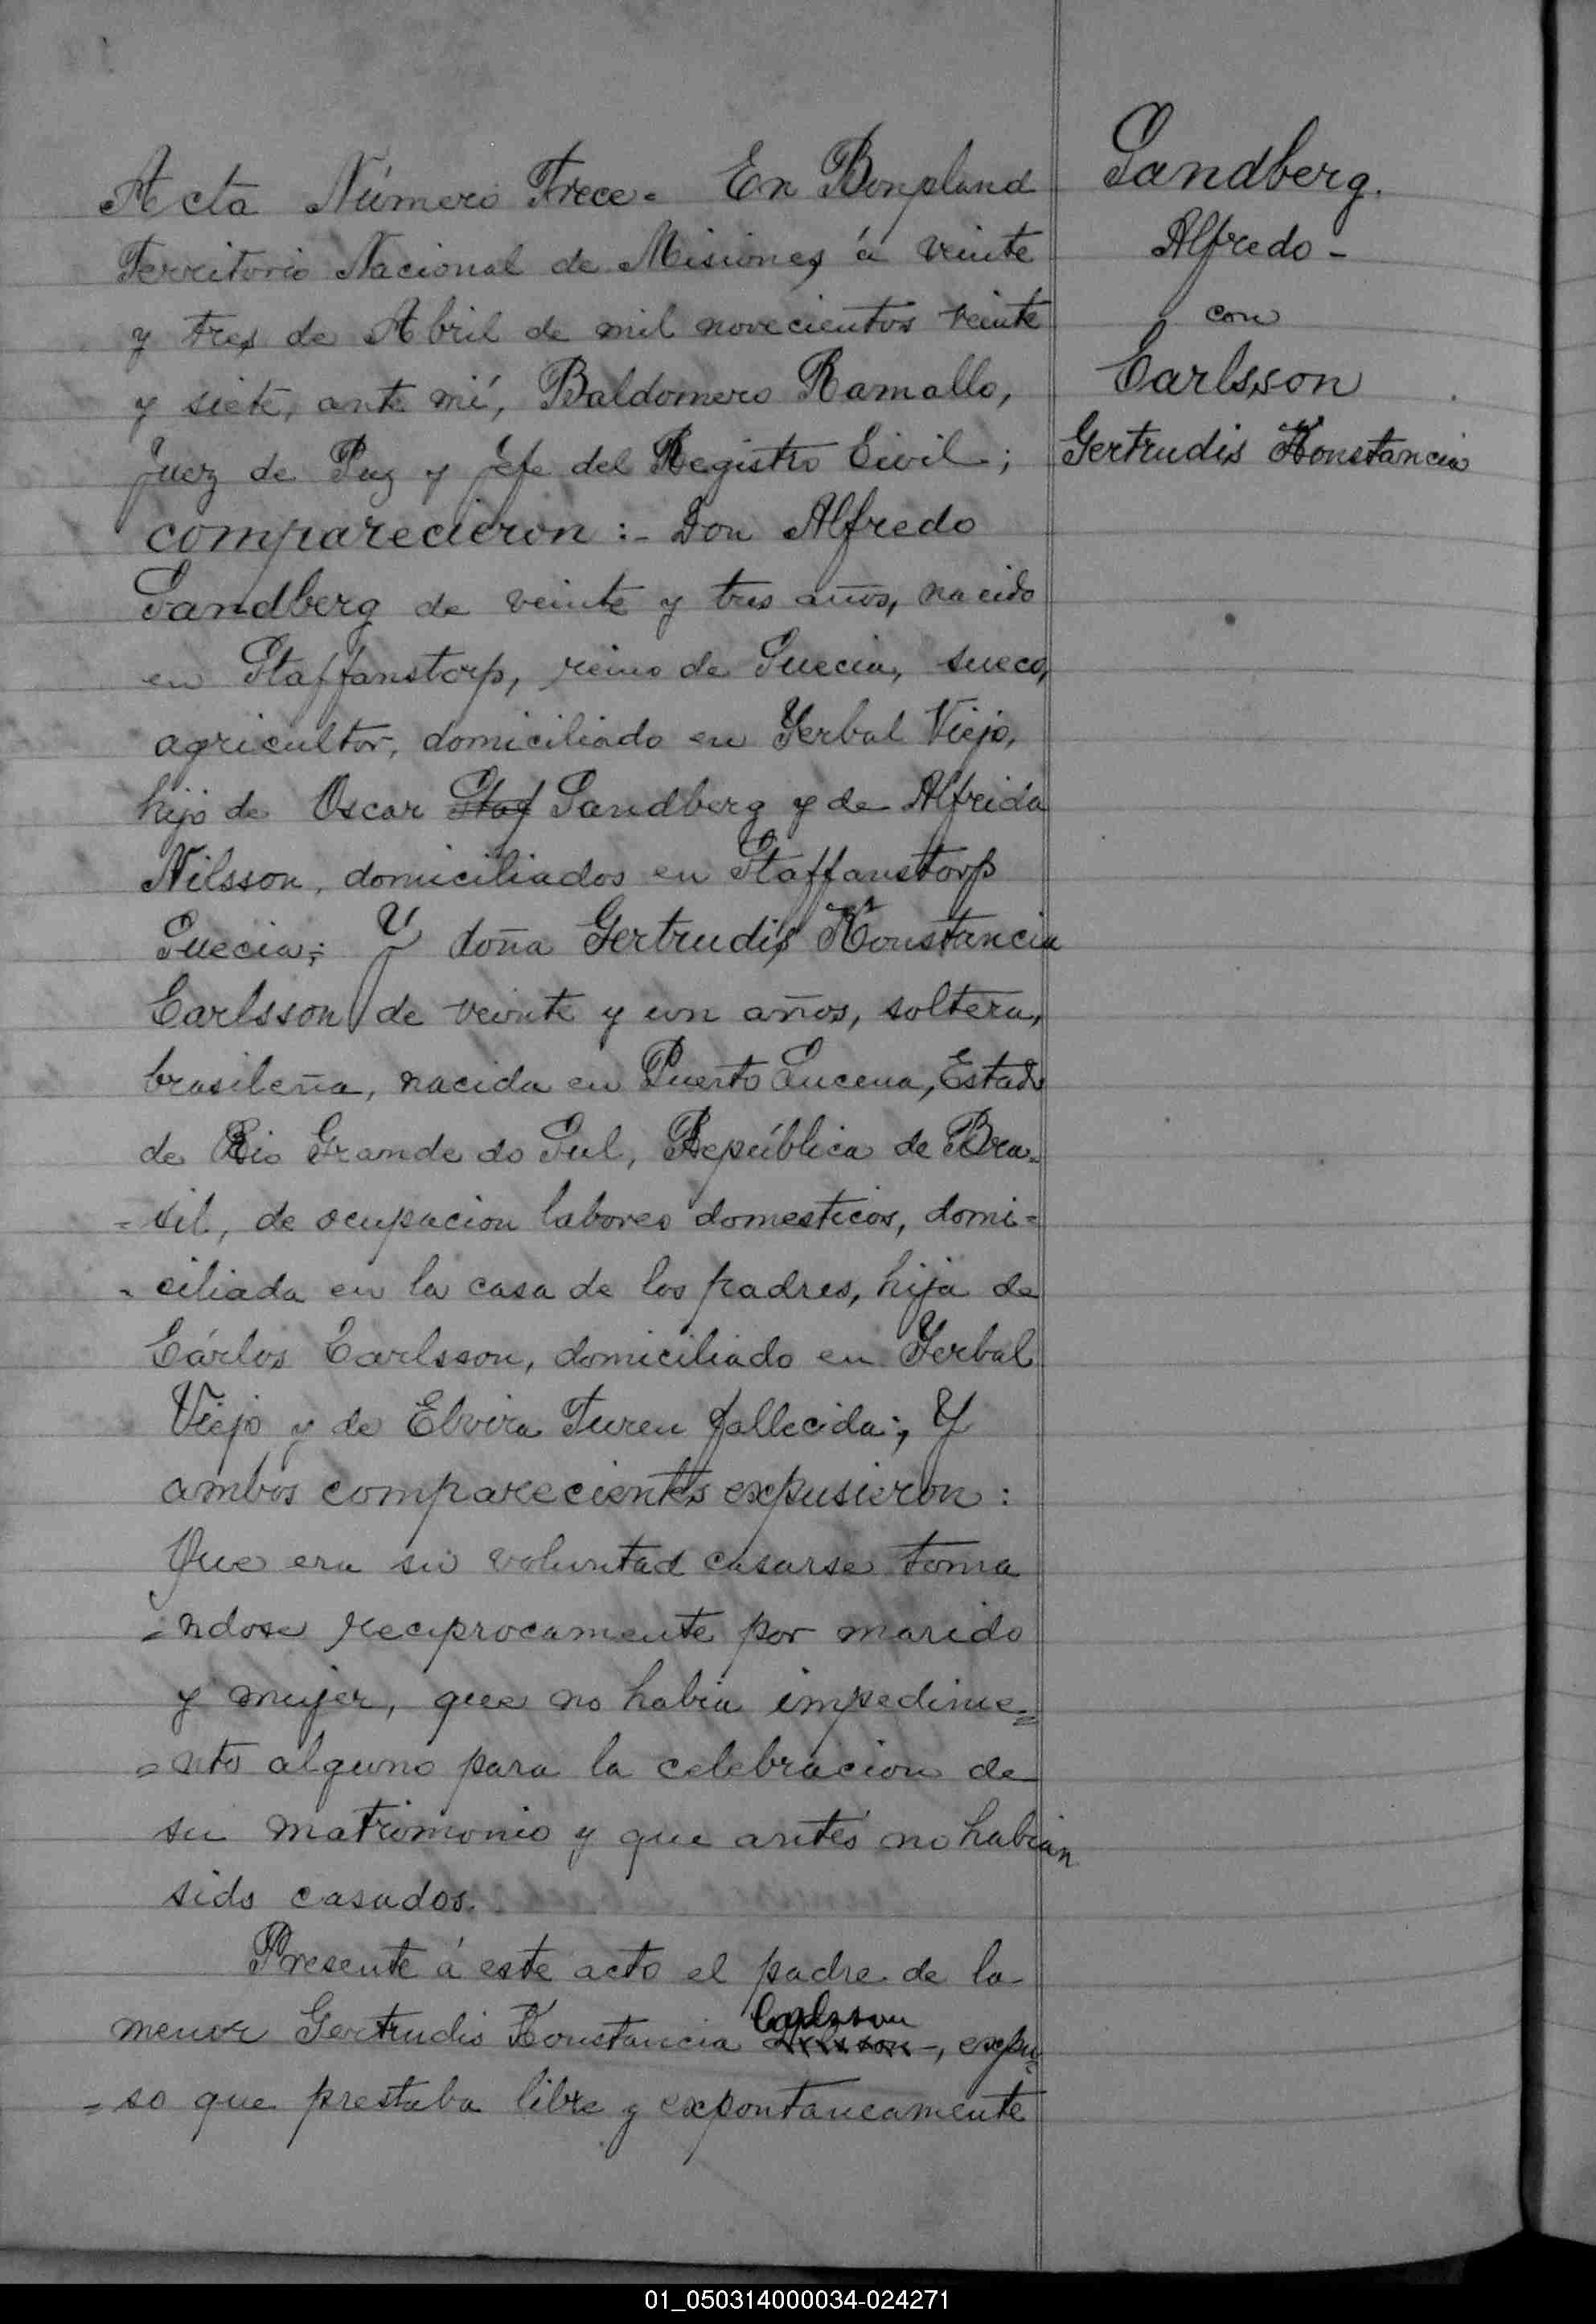 Acta Número Trece. En Bonpland
Territorio Nacional de Misiones á veinte
y tres de Abril de mil novecientos veinte
y siete, ante mí, Baldomero Ramallo,
Juez de Paz y Jefe del Registro Civil;
comparecieron :- Don Alfredo
Sandberg de veinte y tres años, nacido
en Staffanstorp, reino de Suecia, sueco,
agricultor, domiciliado en Yerbal Viejo,
hijo de Oscar Staf Sandberg y de Alfrida
Nilsson, domiciliados en Staffanstorp
Suecia; Y doña Gertrudis Konstancia
Carlsson de veinte y un años, soltera,
brasileña, nacida en Puerto Lucena, Estado
de Rio Grande do Sul, República de Bra=
=sil, de ocupacion labores domesticos, domi=
=ciliada en la casa de los padres, hija de
Cárlos Carlsson, domiciliado en Yerbal
Viejo y de Elvira Turen fallecida; Y
ambos comparecientes expusieron:
Que era su voluntad casarse toma
=ndose reciprocamente por marido
y mujer, que no habia impedime=
=nto alguno para la celebracion de
su matrimonio y que antes no habian
sido casados.
Presente á este acto el padre de la
Carlsson
menor Gertrudis Konstancia, expu=
=so que prestaba libre y expontaneamente
Sandberg.
Alfredo -
con
Carlsson
Gertrudis Konstancia
01_050314000034-024271